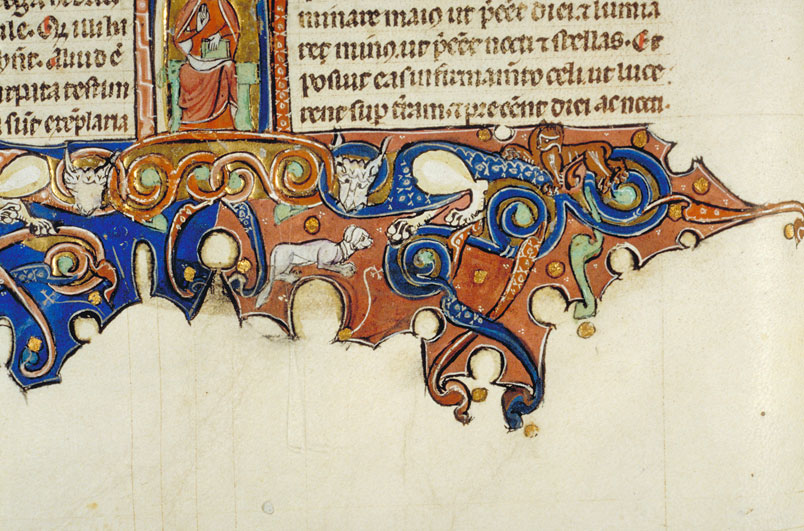 Aliud ē
testim
exēplaria
minare maiꝰ ut p̄cēt diei ⁊ lumīa
re minꝰ ut p̄cēt nocti ⁊ stellas. Et
posuit eas in firmamīto celi ut luce
rent sup t̄ram ⁊ precēnt diei ac nocti.